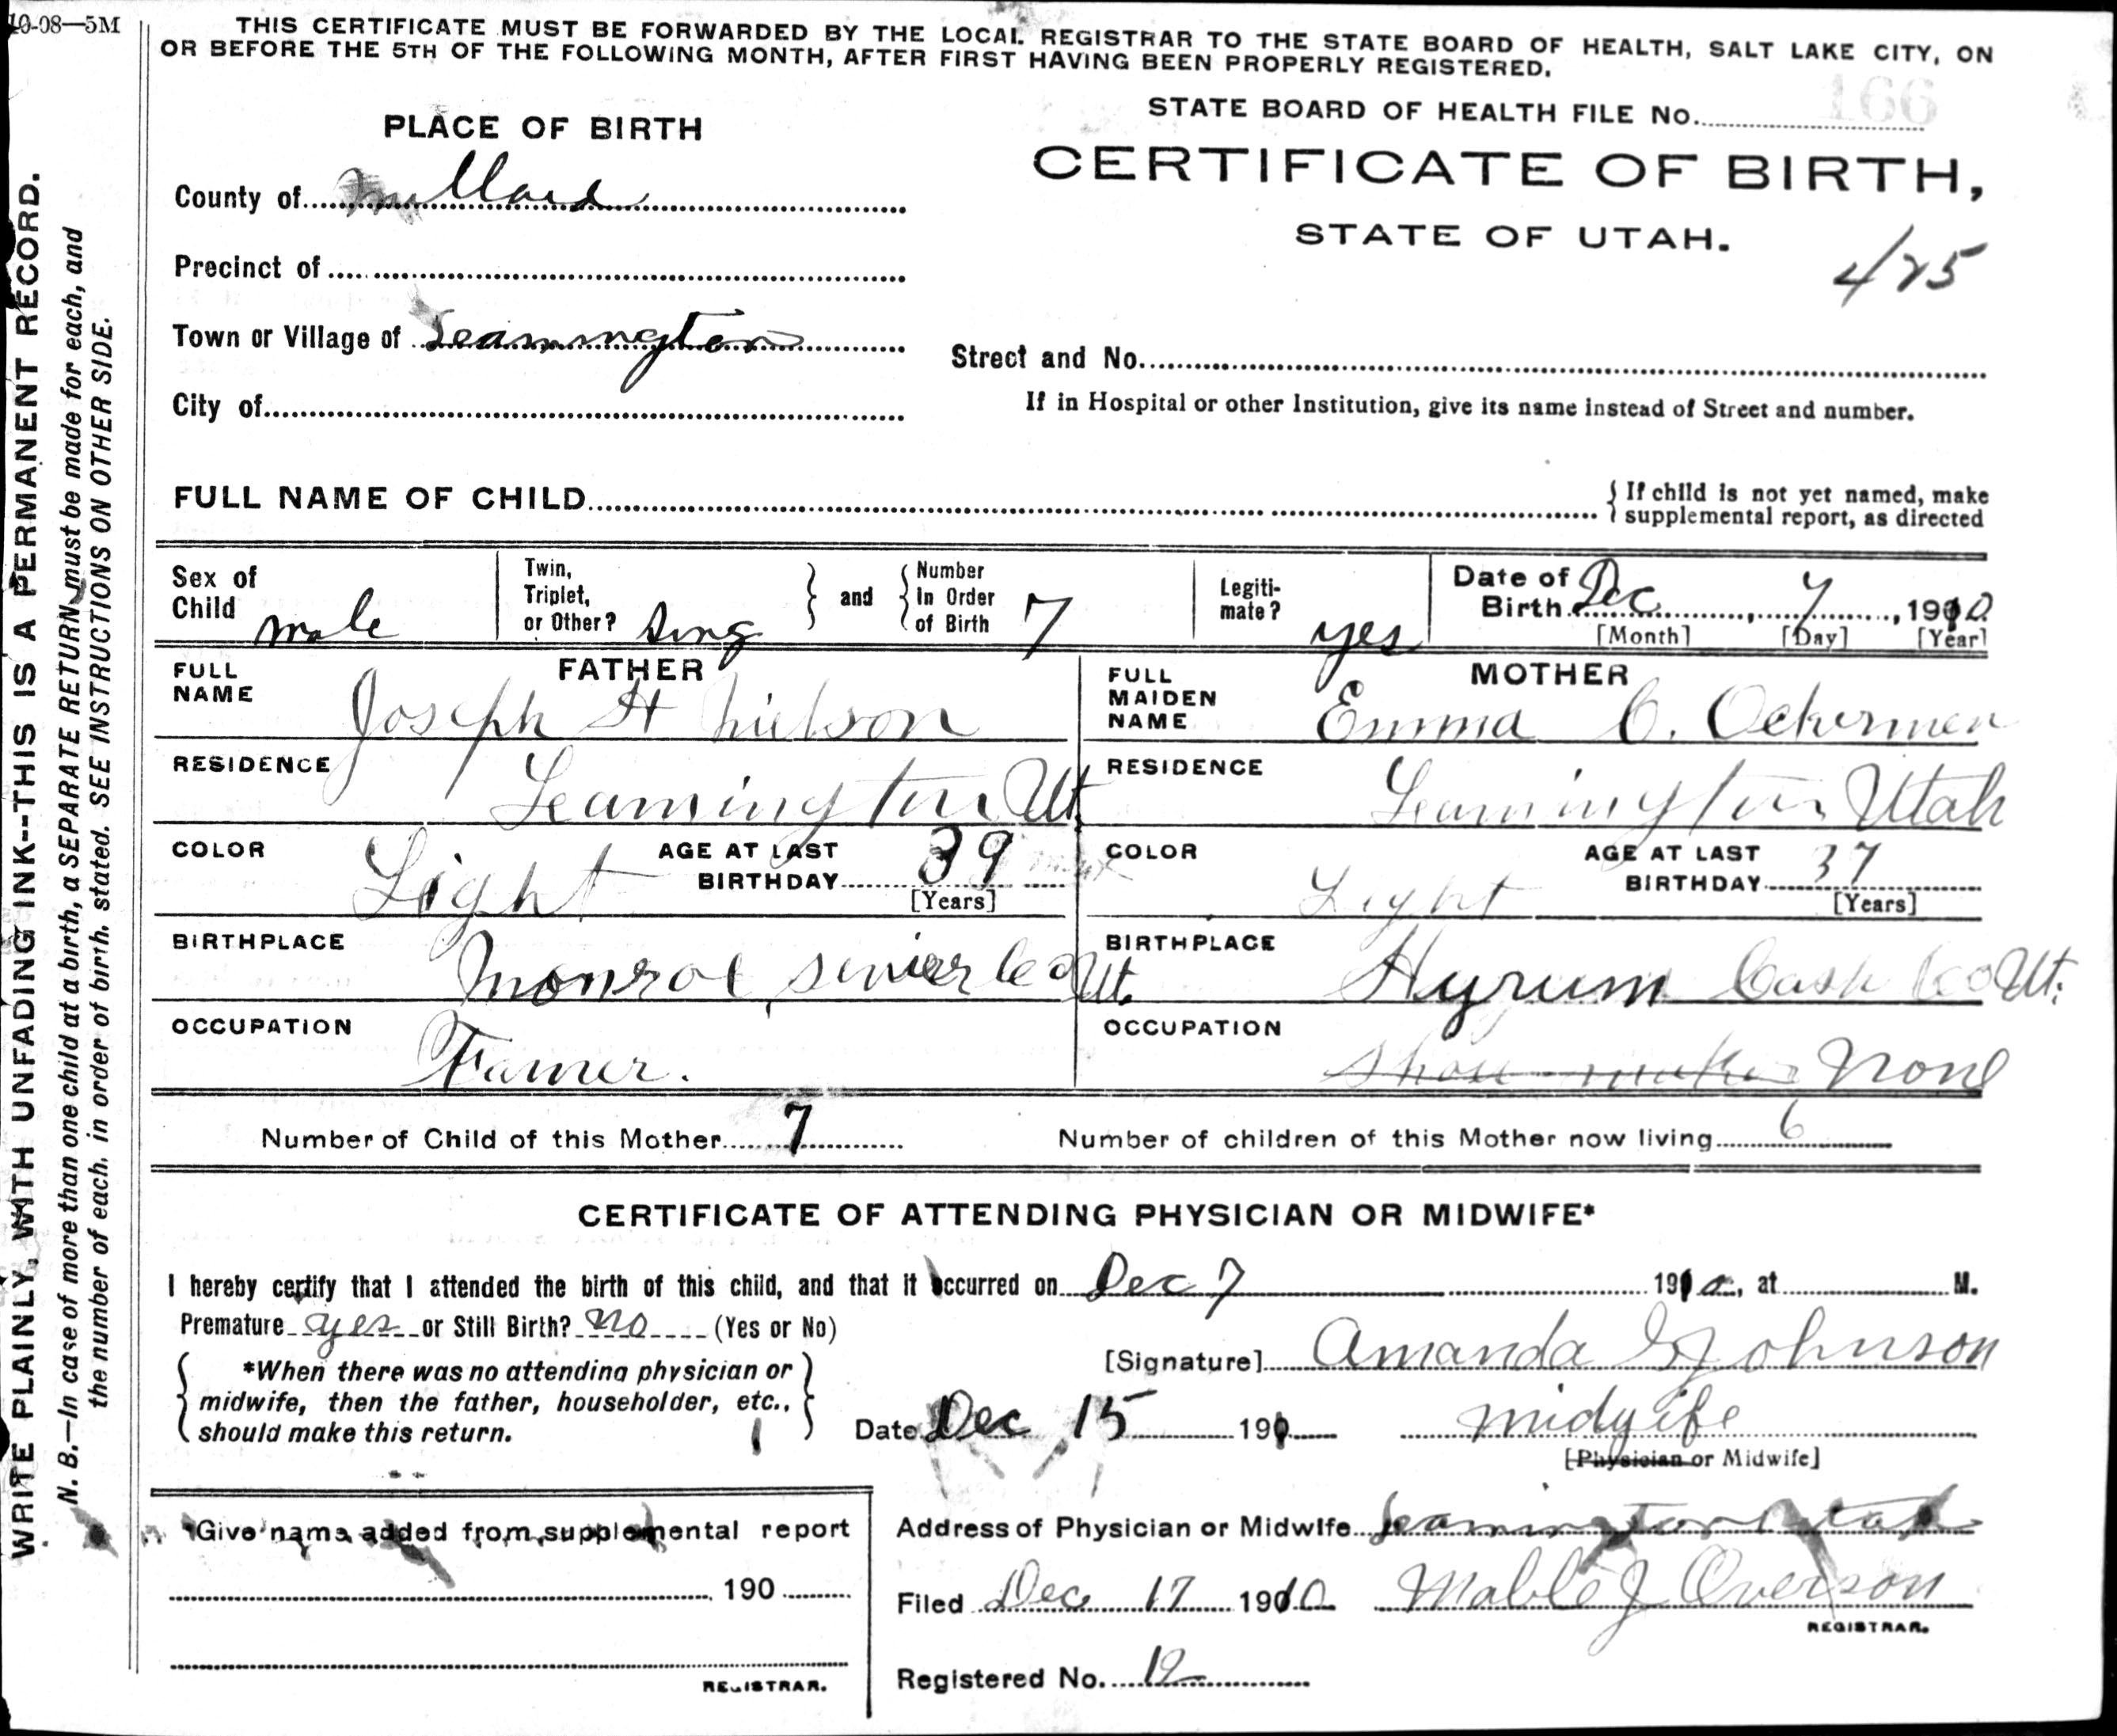 10-08—5M
THIS CERTIFICATE MUST BE FORWARDED BY THE LOCAL REGISTRAR TO THE STATE BOARD OF HEALTH, SALT LAKE CITY, ON
OR BEFORE THE 5TH OF THE FOLLOWING MONTH, AFTER FIRST HAVING BEEN PROPERLY REGISTERED.
WRITE PLAINLY, WITH UNFADING INK--THIS IS A PERMANENT RECORD.
N. B.—In case of more than one child at a birth, a SEPARATE RETURN must be made for each, and
the number of each, in order of birth, stated. SEE INSTRUCTIONS ON OTHER SIDE.
PLACE OF BIRTH
STATE BOARD OF HEALTH FILE No. 166
CERTIFICATE OF BIRTH,
STATE OF UTAH.
425
County of Millard
Precinct of
Town or Village of Leamington
Street and No.
City of
If in Hospital or other Institution, give its name instead of Street and number.
FULL NAME OF CHILD
{ If child is not yet named, make
supplemental report, as directed
Sex of Child male
Twin, Triplet, or Other? Sing } and { Number In Order of Birth 7
Legitimate? yes
Date of Birth Dec, 7, 1910
[Month] [Day] [Year]
FATHER
FULL NAME Joseph H Nielson
MOTHER
FULL MAIDEN NAME Emma C. Ockermen
RESIDENCE Leamington Ut.
RESIDENCE Leamington Utah
COLOR Light AGE AT LAST BIRTHDAY 39 [Years]
COLOR Light AGE AT LAST BIRTHDAY 37 [Years]
BIRTHPLACE Monroe, sevier Co Ut.
BIRTHPLACE Hyrum Cash Co Ut.
OCCUPATION Famer.
OCCUPATION None
Number of Child of this Mother 7
Number of children of this Mother now living 6
CERTIFICATE OF ATTENDING PHYSICIAN OR MIDWIFE*
I hereby certify that I attended the birth of this child, and that it occurred on Dec 7 1910, at M.
Premature yes or Still Birth? no (Yes or No)
{ *When there was no attending physician or
midwife, then the father, householder, etc.,
should make this return. }
[Signature] Amanda Johnson
Date Dec 15 191
midwife
[Physician or Midwife]
*Give name added from supplemental report
190
REGISTRAR.
Address of Physician or Midwife Leamington Utah
Filed Dec 17 1910 Mable J Overson
REGISTRAR.
Registered No. 12